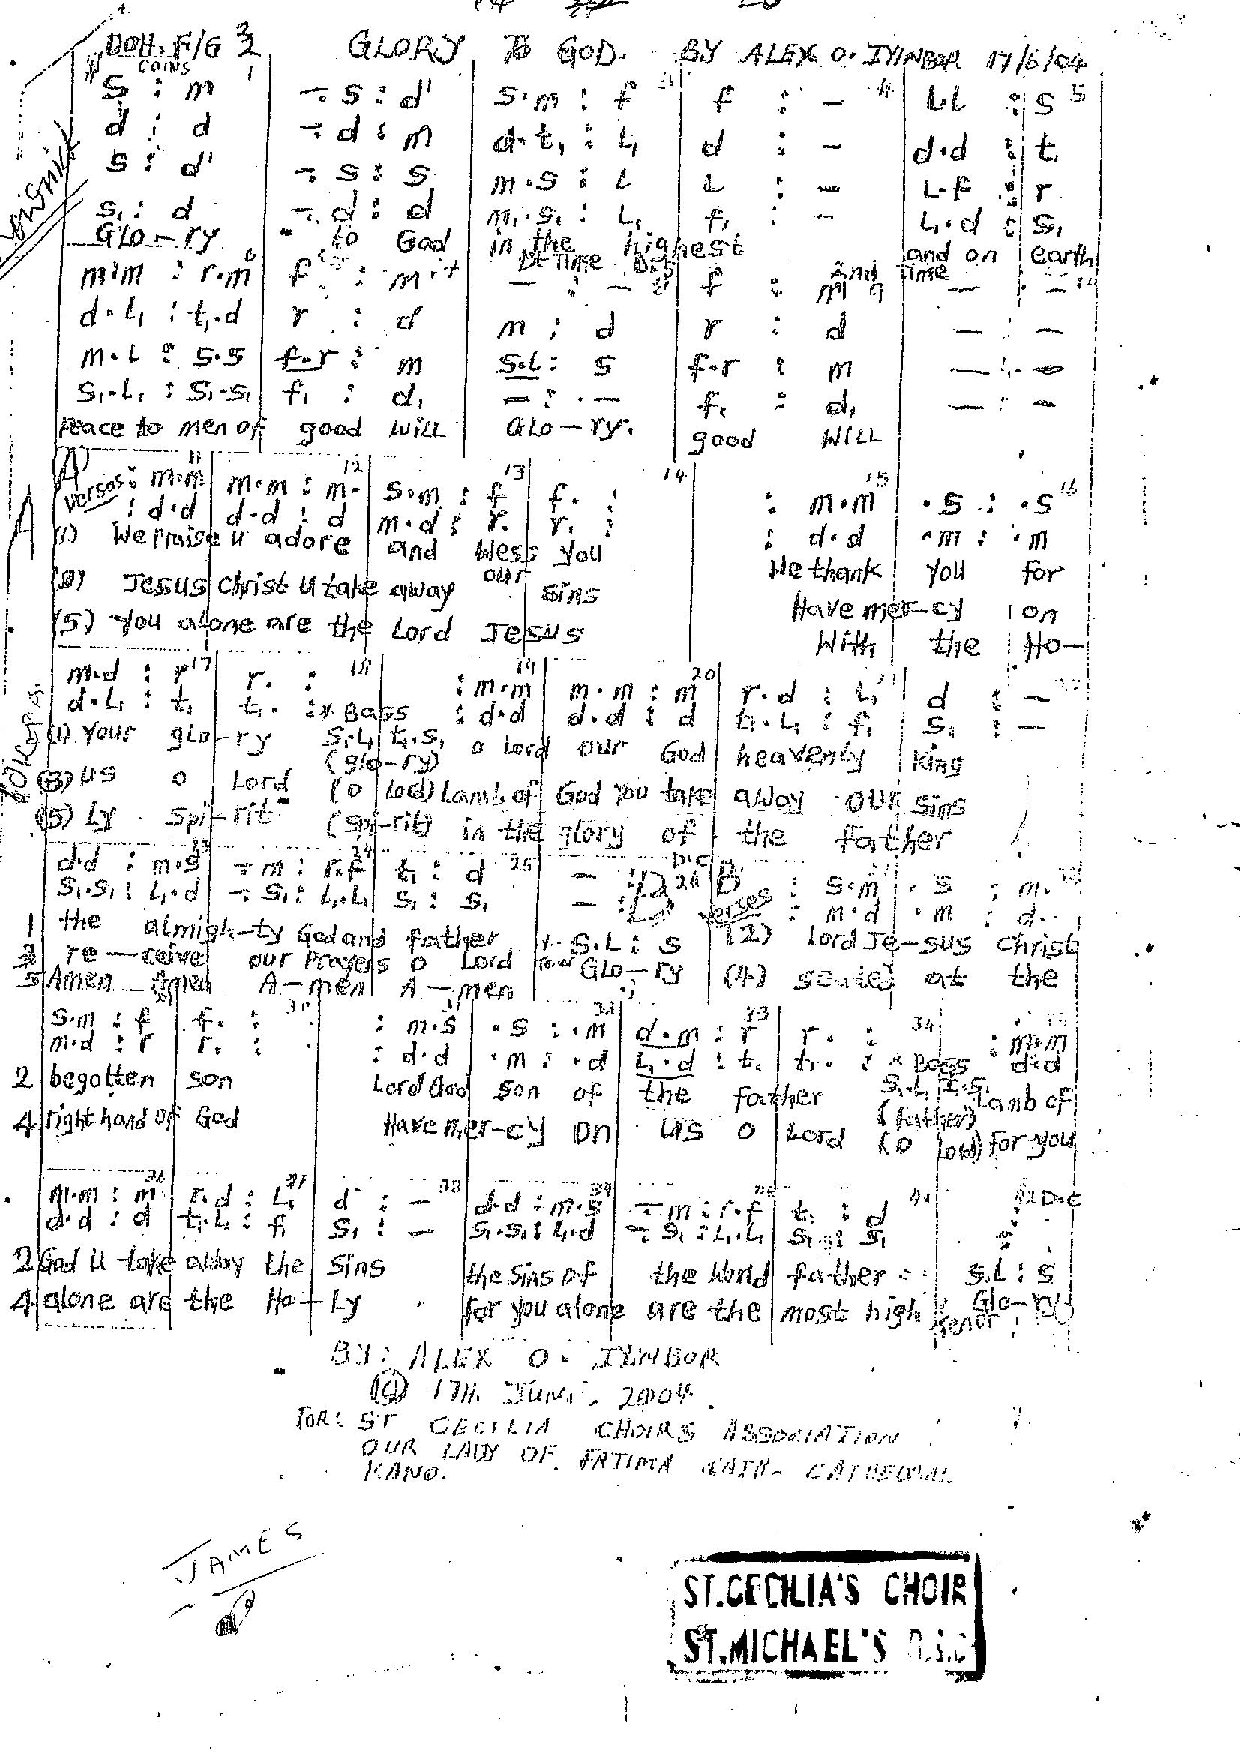 DOH. F/G 2/2 GLORY TO GOD. BY ALEX O. IYINBOR 17/6/04
s : m | -. s : d' | s.m : f | f : - | l.l : s
d : d | -. d : m | d.t, : l, | d : - | d.d : t,
s : d' | -. s : s | m.s : l | l : - | l.f : r
s, : d | -. d : d | m,.s, : l, | f, : - | l,.d : s,
GLO-ry to God in the highest and on earth
1st time 2nd time
d.l, : t,.d | r : d | m : d | r : d | - : -
m.l : s.s | f.r : m | s.l : s | f.r : m | - : -
s,.l, : s,.s, | f, : d, | - : - | f, : d, | - : -
Peace to men of good will GLO-ry. good WILL
A
verses : m.m | m.m : m. | s.m : f | f. : | : m.m | .s : .s
: d.d | d.d : d | m.d : r. | r. : | : d.d | .m : .m
(1) We Praise u adore and bless you We thank you for
Jesus Christ u take away our sins Have mer-cy on
(5) You alone are the Lord Jesus With the Ho-
m.d : r | r. : | : m.m | m.m : m | r.d : l, | d : -
d.l, : t, | t,. : * Bass | : d.d | d.d : d | t,.l, : f, | s, : -
(1) Your glo-ry (glo-ry) o Lord our God heavenly king
(3) us o Lord (o lod) Lamb of God you take away our sins
(5) Ly Spi-rit (Spi-rit) in the glory of the father
d.d : m.s | -. m : r.f | t, : d | - D.C B
s,.s, : l,.d | -. s, : l,.l, | s, : s, | -
verses : s.m | . s : m.
: m.d | . m : d.
1 the almigh-ty God and father s.l : s (2) Lord Je-sus Christ
3 re-ceive our Prayers o Lord Glo-ry (4) seated at the
5 Amen Amen A-men A-men
s.m : f | f. : | : m.s | .s : .m | d.m : r | r. : | : m.m
m.d : r | r. : | : d.d | .m : .d | l,.d : t, | t,. : * Bass | d.d
2 begotten son Lord God son of the father (father) Lamb of
4 right hand of God Have mer-cy on us o Lord (o lod) for you
m.m : m | r.d : l, | d : - | d.d : m.s | -. m : r.f | t, : d | D.C
d.d : d | t,.l, : f, | s, : - | s,.s, : l,.d | -. s, : l,.l, | s, : s,
2 God u take away the sins the sins of the world father s.l : s
4 alone are the Ho-Ly for you alone are the most high Glo-ry
Tenor
BY: ALEX O. IYINBOR
@ 17th June. 2004.
FOR: ST CECILIA CHOIRS ASSOCIATION
OUR LADY OF FATIMA CATH- CATHEDRAL
KANO.
JAMES
ST.CECILIA'S CHOIR
ST.MICHAEL'S